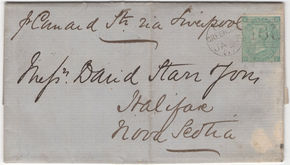 p Cunard Str. via Liverpool
Messrs. David Starr & Sons
Halifax
Nova Scotia